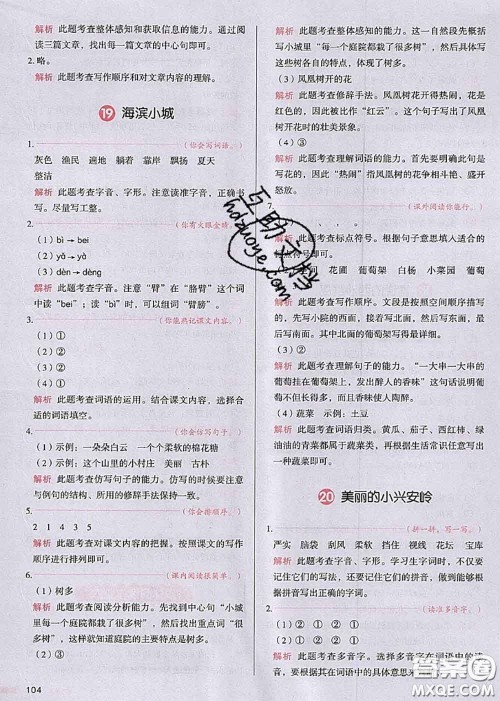 解析 此题考查整体感知和获取信息的能力。通过阅
读三篇文章，找出每一篇文章的中心句即可。
2. 略。
解析 此题考查写作顺序和对文章内容的理解。
19 海滨小城
1.
(你会写词语。)
灰色 渔民 遍地 躺着 靠岸 飘扬 夏天
整洁
解析 此题考查字音、字形。注意读准字音，正确书
写。尽量写工整。
2.
(你有火眼金睛。)
(1) bì → bei
(2) yǎ → yà
(3) dèn → dèng
解析 此题考查字音。注意“臂”在“胳臂”这个词中
读“bei”；读“bì”时，可以组词“臂膀”。
3.
(你能熟记课文内容。)
(1) ①
(2) ②
解析 此题考查词语的运用。结合课文内容，选择合
适的词语填空。
4.
(你会仿写句子。)
(1) 示例：一朵朵白云 一个个柔软的棉花糖
(2) 示例：这个山里的小村庄 美丽 古朴
解析 此题考查仿写句子的能力。仿写的时候要注意
与例句的结构、所用的修辞手法保持一致。
5.
(你会排顺序。)
2 1 4 3 5
解析 此题考查对课文内容的把握。按照课文的写作
顺序进行排列即可。
6.
(课内阅读很简单。)
(1) 树多
解析 此题考查阅读分析能力。先找到段中心句“小城
里每一个庭院都栽了很多树”，然后找到关键词“很多
树”，这样就知道庭院的主要特点是树多。
(2) ③
104
解析 此题考查整体感知的能力。这一自然段先概括
写小城里“每一个庭院都栽了很多树”，然后再具体写
这些树各自的特点，体现了树多。
(3) 凤凰树开的花
解析 此题考查修辞手法。凤凰树花开得热闹，花是
红色的，因此被比作“红云”。这个句子写出了凤凰
树开花时的壮美景象。
(4) ①
解析 此题考查理解词语的能力。首先要明确此句是
写花的，因此“热闹”指凤凰树的花争相斗艳、盛开
怒放。
7.
(课外阅读你能行。)
解析 此题考查标点符号。根据句子意思填入适合的
标点符号即可。
花圃 葡萄架 白杨 小菜园 葡萄
解析 此题考查写作顺序。文段是按照空间顺序描写
的，先写小院的西面，接着写南面，然后写东面，最后
写北面。其中北面的葡萄架写得最详细。
(3) ②
解析 此题考查理解句子的能力。“一大串一大串的
葡萄挂在葡萄架上，发出醉人的香味”这句话说明葡
萄不但长得多，而且又大又香，非常诱人。
(4) 蔬菜 示例：土豆
解析 此题考查词语归类。黄瓜、茄子、西红柿、绿
油油的青菜都属于蔬菜类，再根据生活常识任意写出
一种蔬菜即可。
20 美丽的小兴安岭
1.
(拼一拼，写一写。)
严实 脑袋 刮风 柔软 挡住 视线 花坛 宝库
解析 此题考查字音、字形。学习生字词时，不仅要
记住它们的写法，还要记住它们的读音，这样才能够
根据拼音写出正确的汉字。
2.
(读准多音字。)
② ② ① ① ② ①
解析 此题考查多音字。选择多音字时，要根据多音字在词语中的读